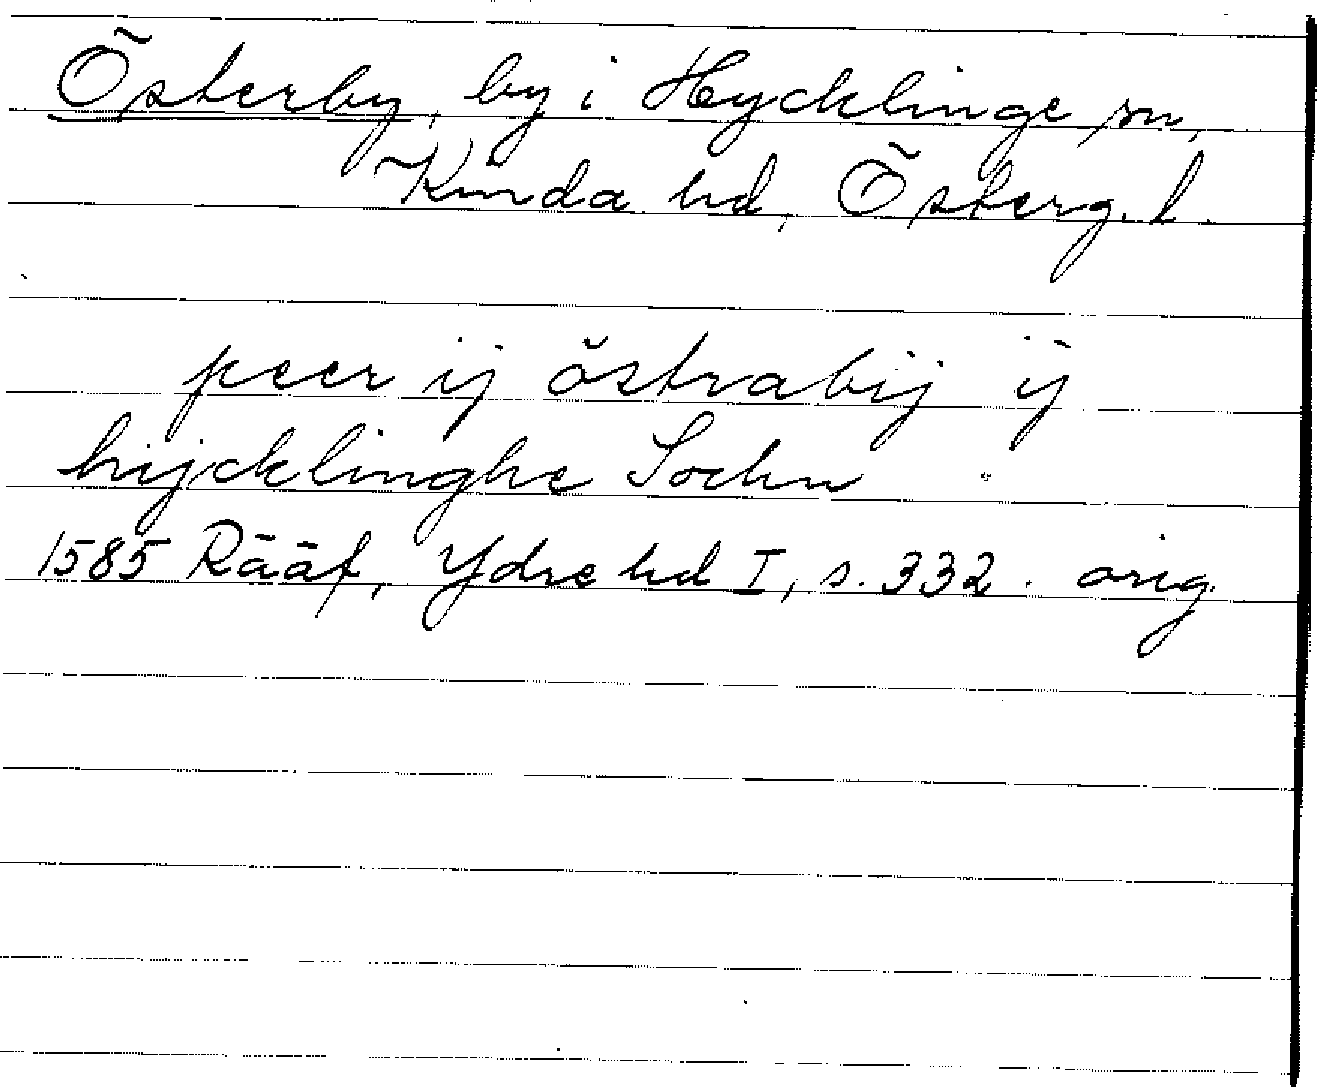 Österby, by i Hycklinge sn,
Kinda hd, Österg. l.
peer ij östrabij ij
hijcklinghe Sochn
1585 Rääf, Ydre hd I, s. 332. orig.